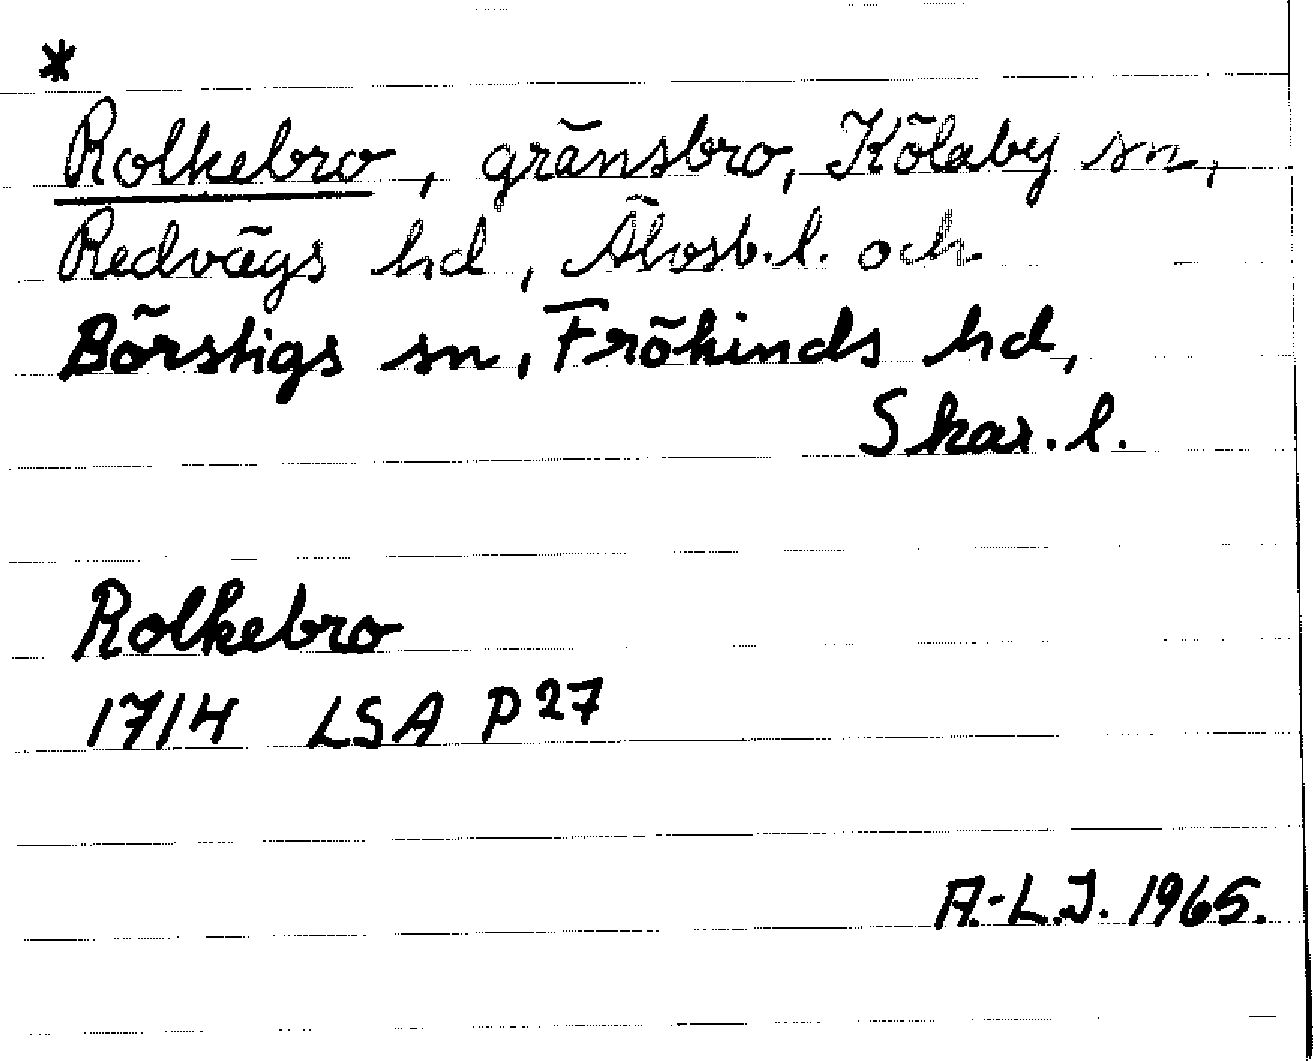 *
Rolkebro, gränsbro, Kölaby sn,
Redvägs hd, Älvsb. l. och
Börstigs sn, Frökinds hd,
Skar. l.
Rolkebro
1714 LSA P 27
A.-L.J. 1965.